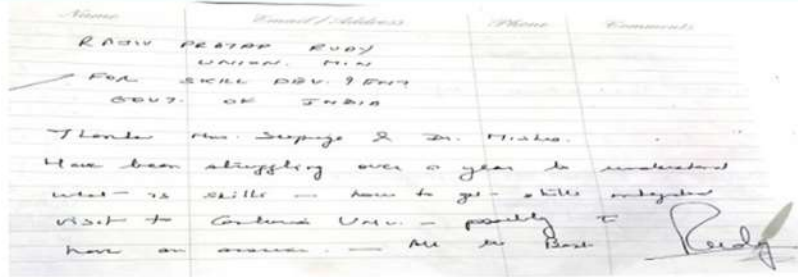 Name Email / Address Phone Comments
RAJIV PRATAP RUDY
UNION. MIN
FOR SKILL DEV. & ENT
GOVT. OF INDIA
Thanks Mrs. & Dr. Mishra.
Have been struggling over a year to understand
what is skills — how to get skills integrated
visit to Centurion Univ. — possibly I
have an answer. — All the Best
Rudy